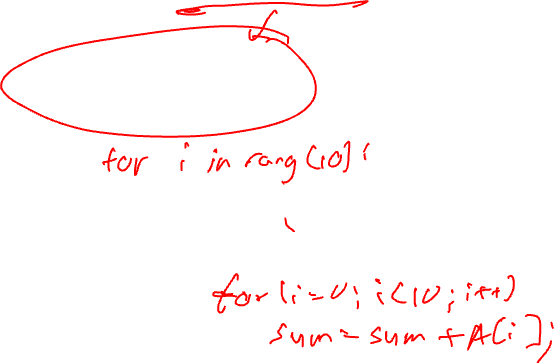 for i in rang(10):
for(i=0; i<10; i++)
sum=sum+A[i];